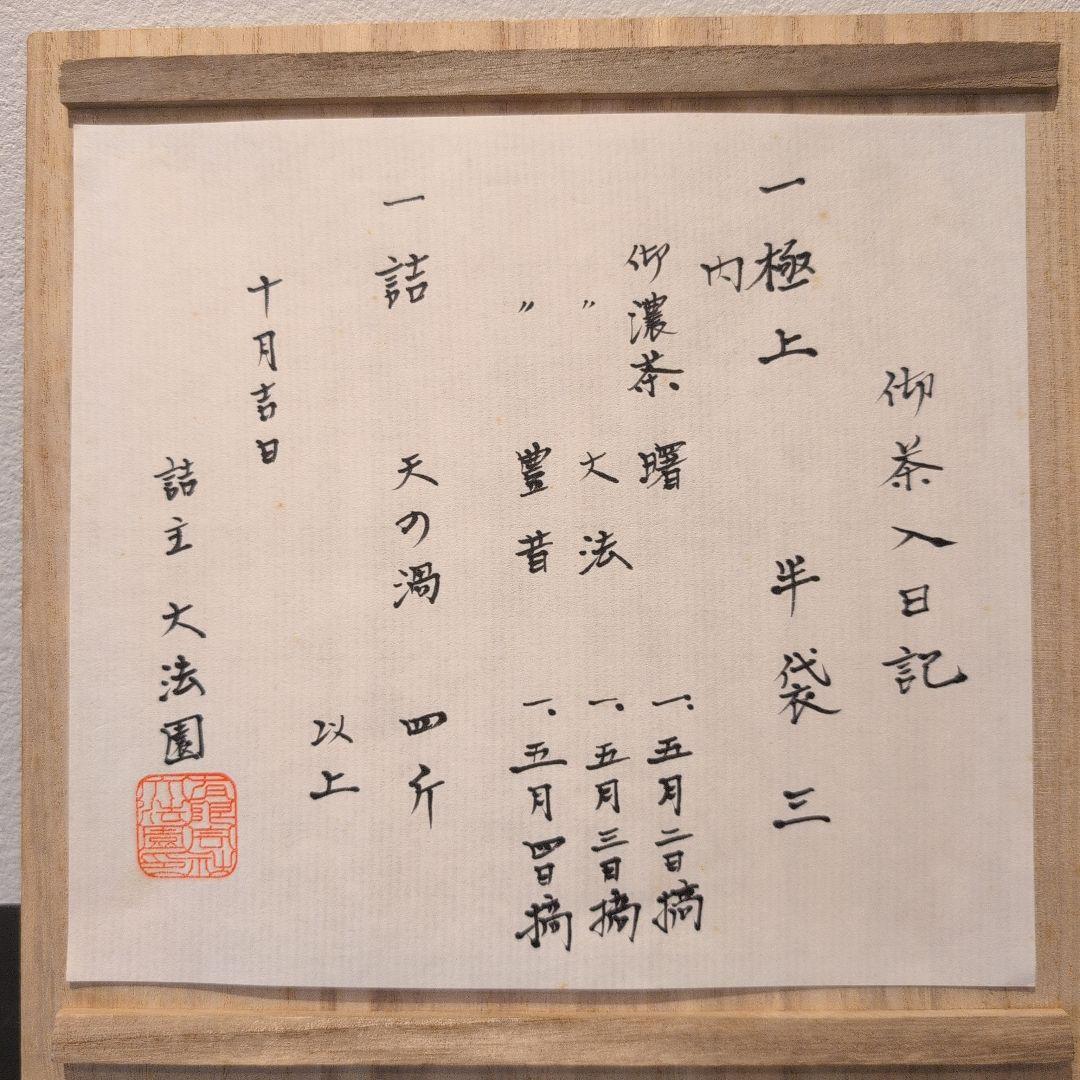 御茶入日記
一極上 半袋 三
内
御濃茶 曙 一、五月二日摘
〃 大法 一、五月三日摘
〃 豊昔 一、五月四日摘
一詰 天の渦 四斤
以上
十月吉日
詰主 大法園